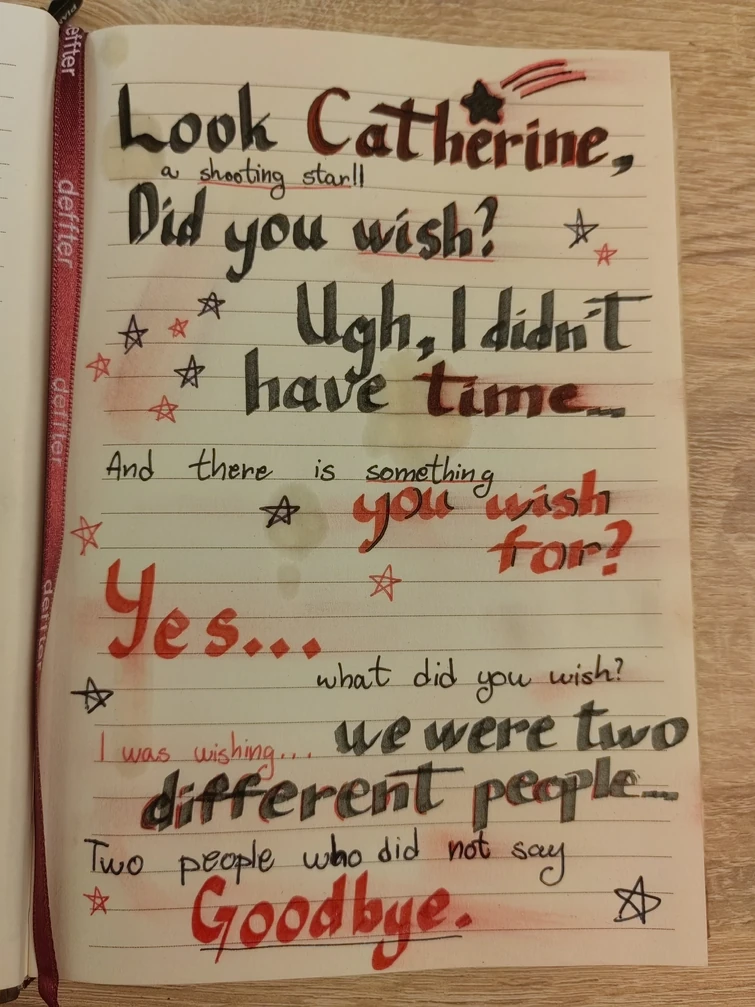 Look Catherine,
a shooting star!!
Did you wish?
Ugh, I didn't
have time...
And there is something
you wish
for?
Yes...
what did you wish?
I was wishing... we were two
different people...
Two people who did not say
Goodbye.
deffter
deffter
deffter
deffter